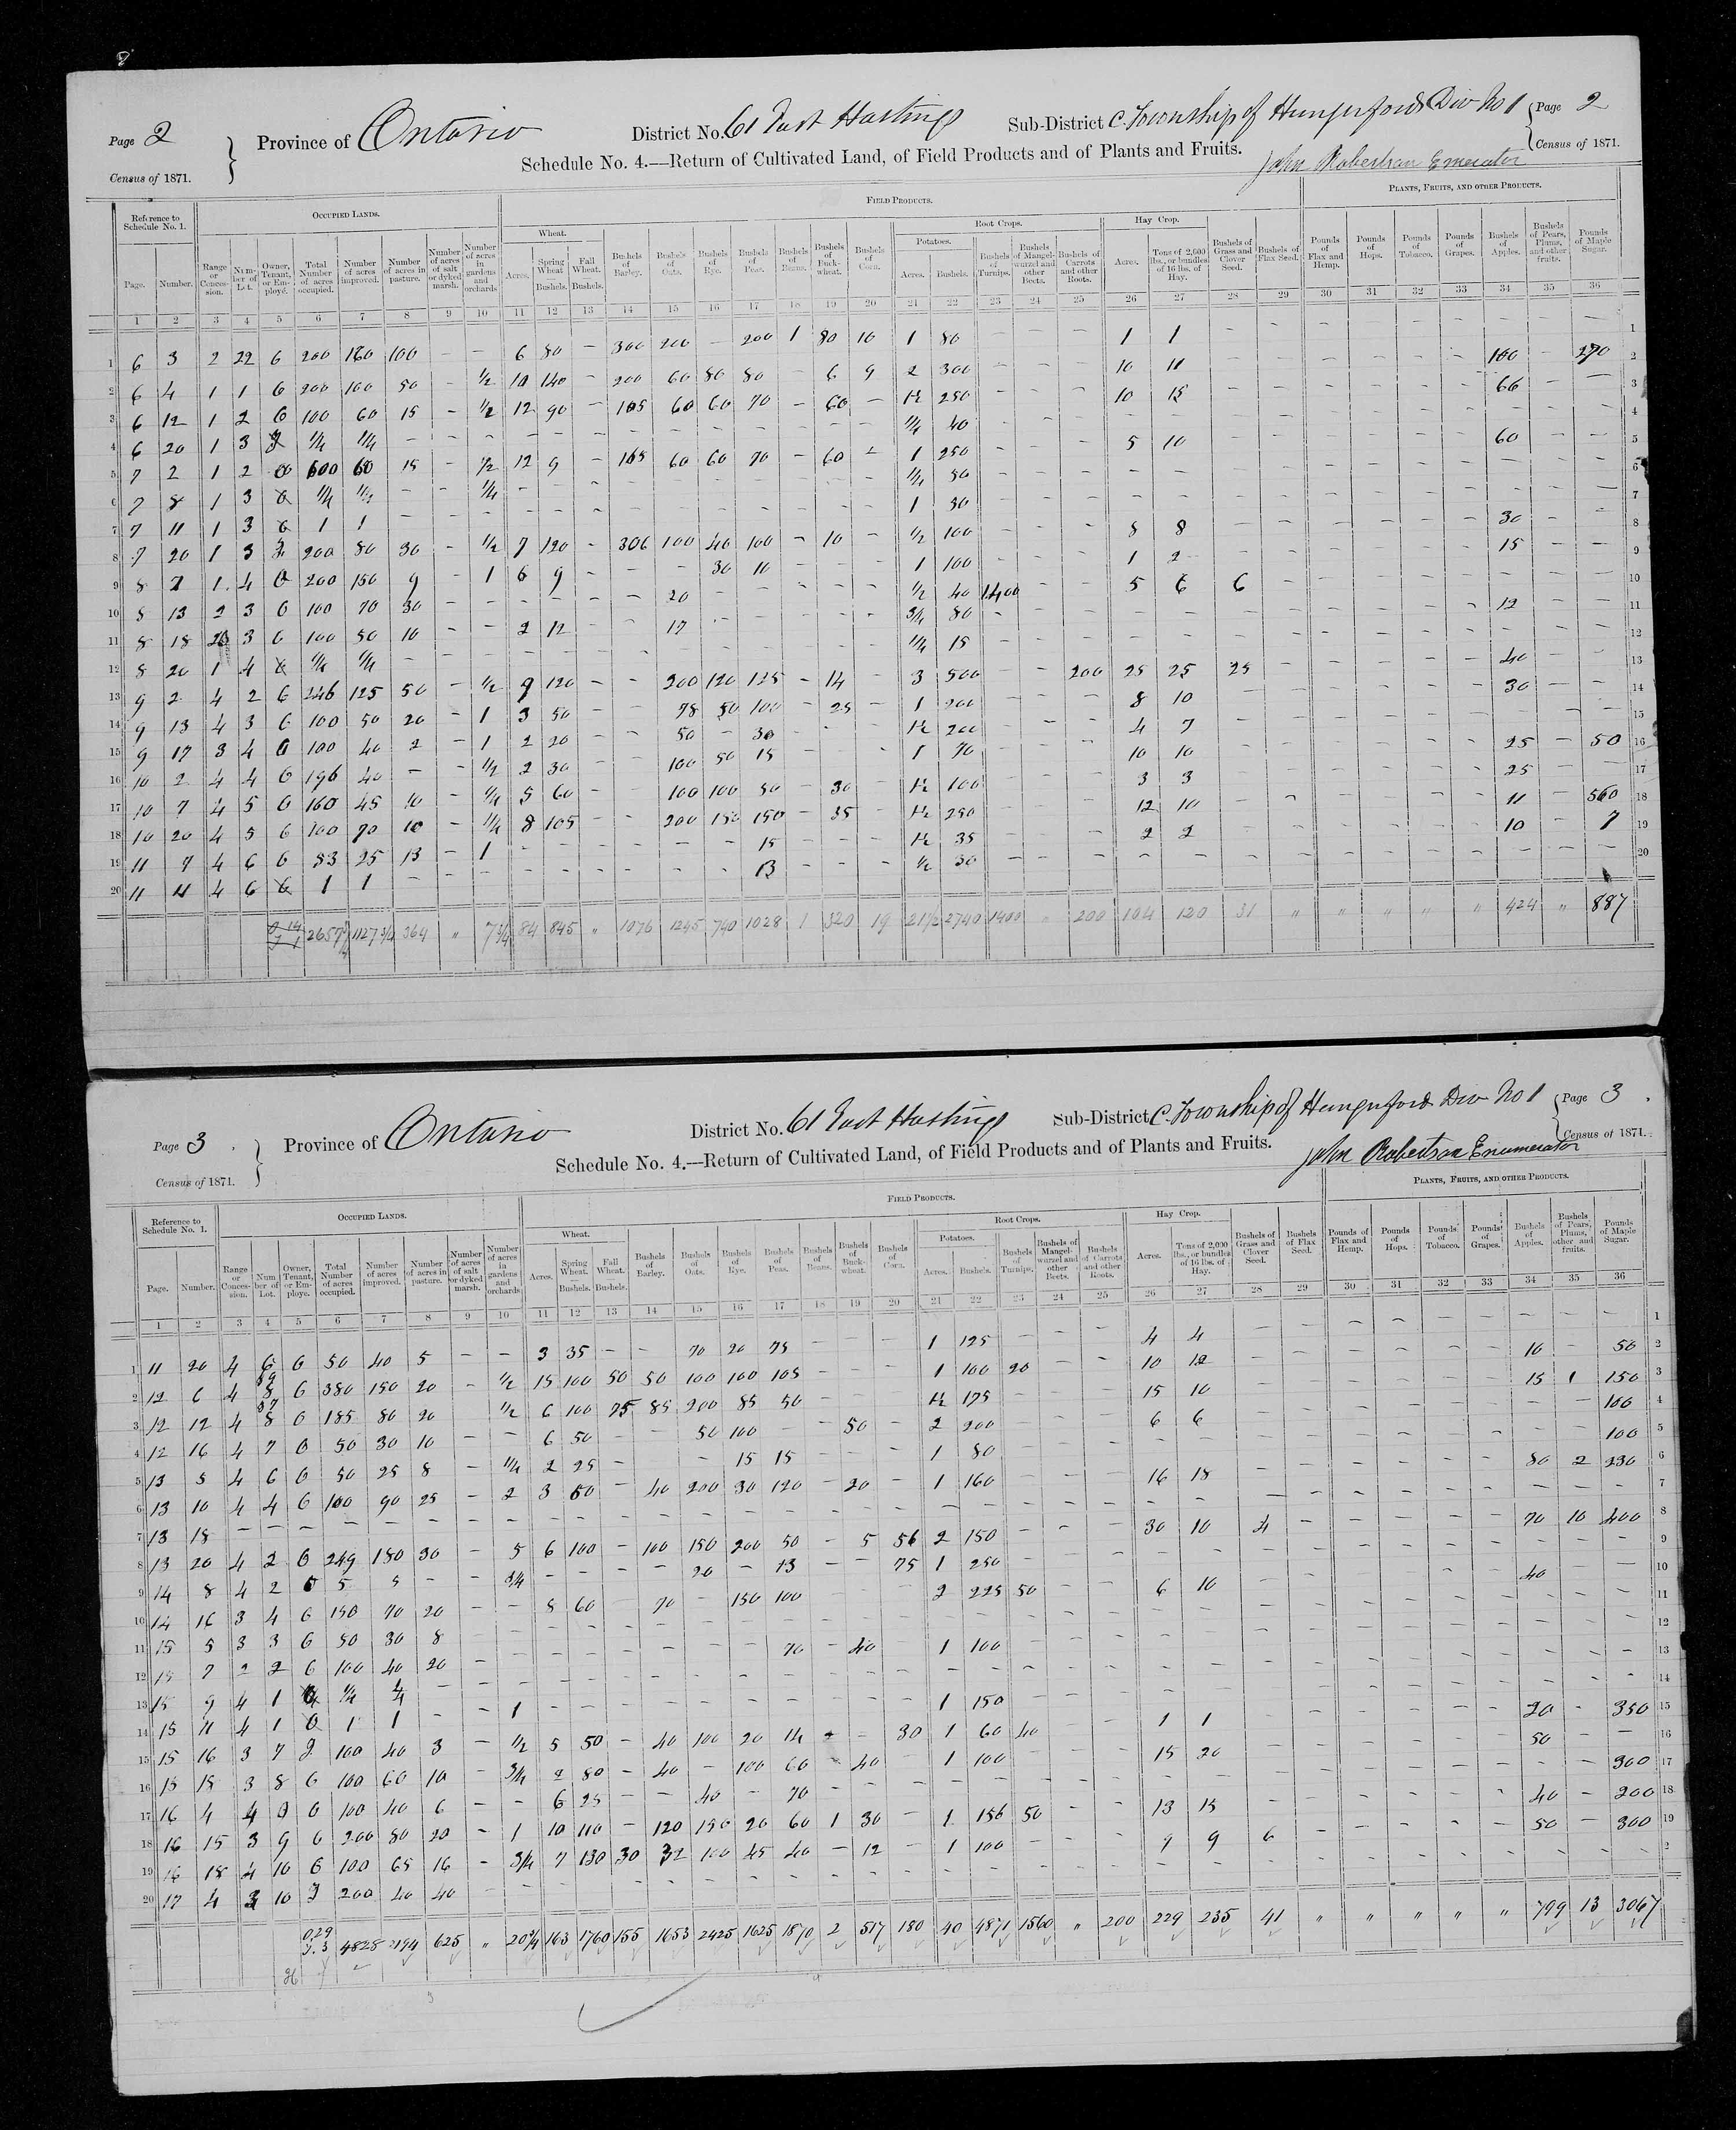 Page 2
Census of 1871.
Province of Ontario
District No. 61 East Hastings
Sub-District C. Township of Hungerford Div No 1
Page 2
Census of 1871.
Schedule No. 4.—Return of Cultivated Land, of Field Products and of Plants and Fruits.
John Robertson Emerator
Reference to Schedule No. 1.
OCCUPIED LANDS.
FIELD PRODUCTS.
PLANTS, FRUITS, AND OTHER PRODUCTS.
Wheat.
Root Crops.
Potatoes.
Hay Crop.
Page. Number. Range or Concession. Number of Lot. Owner, Tenant, or Employé. Total Number of acres occupied. Number of acres improved. Number of acres in pasture. Number of acres of salt or dyked marsh. Number of acres in gardens and orchards
Acres. Spring Wheat Bushels. Fall Wheat. Bushels. Bushels of Barley. Bushels of Oats. Bushels of Rye. Bushels of Peas. Bushels of Beans. Bushels of Buckwheat. Bushels of Corn. Acres. Bushels. Bushels of Turnips. Bushels of Mangel-wurzel and other Beets. Bushels of Carrots and other Roots.
Acres. Tons of 2,000 lbs., or bundles of 16 lbs. of Hay. Bushels of Grass and Clover Seed. Bushels of Flax Seed. Pounds of Flax and Hemp. Pounds of Hops. Pounds of Tobacco. Pounds of Grapes. Bushels of Apples. Bushels of Pears, Plums, and other fruits. Pounds of Maple Sugar.
1 2 3 4 5 6 7 8 9 10 11 12 13 14 15 16 17 18 19 20 21 22 23 24 25 26 27 28 29 30 31 32 33 34 35 36
1 6 3 2 22 200 160 100 – – 6 80 – 300 200 – 200 1 80 10 1 80 – – – 1 1 – – – – – – – – – 1
2 6 4 1 1 200 100 50 – 1/2 10 140 – 200 60 80 80 – 6 9 2 300 – – – 10 11 – – – – – – 100 – 270 2
3 6 12 1 2 100 60 15 – 1/2 12 90 – 105 60 60 70 – 60 – 250 – – – 10 15 – – – – – – 66 – – 3
4 6 20 1 3 1/4 1/4 – – – – – – – – – – – – – 1/4 40 – – – – – – – – – – – – – – 4
5 7 2 1 2 60 15 – 1/2 12 9 – 105 60 60 70 – 60 – 1 250 – – – 5 10 – – – – – – 60 – – 5
6 7 8 1 3 1/4 – – 1/4 – – – – – – – – – – 1/4 50 – – – – – – – – – – – – – – 6
7 7 11 1 3 1 1 – – – – – – – – – – – – – 1 30 – – – – – – – – – – – – – – 7
8 7 20 1 3 200 80 30 – 1/2 7 120 – 306 100 40 100 – 10 – 1/2 100 – – – 8 8 – – – – – – 30 – – 8
9 8 7 1 4 200 150 9 – 1 6 9 – – – 30 10 – – – 1 100 – – – 1 2 – – – – – – 15 – – 9
10 8 13 2 3 100 70 30 – – – – – – 20 – – – – – 1/2 40 1400 – – 5 6 6 – – – – – – – – 10
11 8 18 3 100 50 10 – – 2 12 – – 17 – – – – – 3/4 80 – – – – – – – – – – – 12 – – 11
12 8 20 1 4 1/4 1/4 – – – – – – – – – – – – – 1/4 15 – – – – – – – – – – – – – – 12
13 9 2 4 2 246 125 50 – 1/2 9 120 – – 200 120 125 – 14 – 3 500 – – 200 25 25 25 – – – – – 40 – – 13
14 9 13 4 3 100 50 20 – 1 3 50 – – 78 50 100 – 25 – 1 200 – – – 8 10 – – – – – – 30 – – 14
15 9 17 3 4 100 40 2 – 1 2 20 – – 50 – 30 – – – 200 – – – 4 7 – – – – – – – – – 15
16 10 2 4 4 196 40 – – 1/2 2 30 – – 100 50 15 – – – 1 70 – – – 10 10 – – – – – – 25 – 50 16
17 10 7 4 5 160 45 10 – 1/4 5 60 – – 100 100 50 – 30 – 100 – – – 3 3 – – – – – – 25 – – 17
18 10 20 4 5 100 70 10 – 1/4 8 105 – – 200 150 150 – 35 – 250 – – – 12 10 – – – – – – 11 – 560 18
19 11 7 4 6 83 25 13 – 1 – – – – – – 15 – – – 35 – – – 2 2 – – – – – – 10 – 7 19
20 11 11 4 6 1 1 – – – – – – – – – 13 – – – 1/2 30 – – – – – – – – – – – – – – 20
1127 3/4 364 " 7 3/4 84 845 " 1076 1245 740 1028 1 320 19 21 1/2 2740 1400 " 200 104 120 31 " " " " " 424 " 887
Page 3
Census of 1871.
Province of Ontario
District No. 61 East Hastings
Sub-District C. Township of Hungerford Div No 1
Page 3
Census of 1871.
Schedule No. 4.—Return of Cultivated Land, of Field Products and of Plants and Fruits.
John Robertson Enumerator
Reference to Schedule No. 1.
OCCUPIED LANDS.
FIELD PRODUCTS.
PLANTS, FRUITS, AND OTHER PRODUCTS.
Wheat.
Root Crops.
Potatoes.
Hay Crop.
Page. Number. Range or Concession. Number of Lot. Owner, Tenant, or Employe. Total Number of acres occupied. Number of acres improved. Number of acres in pasture. Number of acres of salt or dyked marsh. Number of acres in gardens and orchards
Acres. Spring Wheat. Bushels. Fall Wheat. Bushels. Bushels of Barley. Bushels of Oats. Bushels of Rye. Bushels of Peas. Bushels of Beans. Bushels of Buckwheat. Bushels of Corn. Acres. Bushels. Bushels of Turnips. Bushels of Mangel-wurzel and other Beets. Bushels of Carrots and other Roots.
Acres. Tons of 2,000 lbs., or bundles of 16 lbs. of Hay. Bushels of Grass and Clover Seed. Bushels of Flax Seed. Pounds of Flax and Hemp. Pounds of Hops. Pounds of Tobacco. Pounds of Grapes. Bushels of Apples. Bushels of Pears, Plums, and other fruits. Pounds of Maple Sugar.
1 2 3 4 5 6 7 8 9 10 11 12 13 14 15 16 17 18 19 20 21 22 23 24 25 26 27 28 29 30 31 32 33 34 35 36
1 11 20 4 6 50 40 5 – – 3 35 – – 70 20 75 – – – 1 125 – – – 4 4 – – – – – – – – – 1
2 12 6 4 380 150 20 – 1/2 15 100 50 50 100 100 105 – – – 1 100 20 – – 10 12 – – – – – – 10 – 50 2
3 12 12 4 185 80 20 1/2 6 100 75 85 200 85 50 – – – 175 – – – 15 10 – – – – – – 15 1 150 3
4 12 16 4 7 50 30 10 – – 6 50 – – 50 100 – – 50 – 2 200 – – – 6 6 – – – – – – – – 100 4
5 13 5 4 6 50 25 8 – 1/4 2 25 – – – 15 15 – – – 1 80 – – – – – – – – – – – – – 100 5
6 13 10 4 4 100 90 25 – 2 3 60 – 40 200 30 120 – 20 – 1 160 – – – 16 18 – – – – – – 80 2 230 6
7 13 18 – – – – – – – – – – – – – – – – – – – – – – – – – – – – – – – – – 7
8 13 20 4 2 249 180 30 – 5 6 100 – 100 150 200 50 – 5 56 2 150 – – – 30 10 4 – – – – – 70 10 400 8
9 14 8 4 2 5 5 – – 3/4 – – – – 20 – 13 – – 75 1 250 – – – – – – – – – – – – – – 9
10 14 16 3 4 150 70 20 – – 8 60 – 70 – 130 100 2 225 50 – – 6 10 – – – – – – 40 – – 10
11 15 5 3 3 50 30 8 – – – – – – – – – – – – – – – – – – – – – – – – – – – – 11
12 15 7 2 2 100 40 20 – – – – – – – – 70 – 40 1 100 – – – – – – – – – – – – – – 12
13 15 9 4 1 1/4 1/4 – – – – – – – – – – – – – – – – – – – – – – – – – – – – – 13
14 15 11 4 1 1 1 – – 1 – – – – – – – – – – 1 150 – – – – – – – – – – – – – – 14
15 15 16 3 7 100 40 3 – 1/2 5 50 – 40 100 20 14 – – 30 1 60 40 – – 1 1 – – – – – – 20 – 350 15
16 15 18 3 8 100 60 10 – 3/4 2 80 – 40 – 100 60 – 40 1 100 – – – 15 20 – – – – – – 50 – – 16
17 16 4 4 100 40 6 – – 6 25 – – 40 – 70 – – – – – – – – – – – – – – – – – – 300 17
18 16 15 3 9 200 80 20 – 1 10 110 – 120 190 20 60 1 30 – 1 156 50 – – 13 15 – – – – – – 40 – 200 18
19 16 18 4 10 100 65 16 – 3/4 7 130 30 32 100 45 40 – 12 – 1 100 – – – 9 9 6 – – – – – 50 – 300 19
20 17 4 3 10 200 40 40 – – – – – – – – – – – – – – – – – – – – – – – – – – – – 2
4828 2194 625 " 163 1760 155 1653 2425 1625 1870 2 517 180 40 4871 1560 " 200 229 235 41 " " " " " 799 13 3067